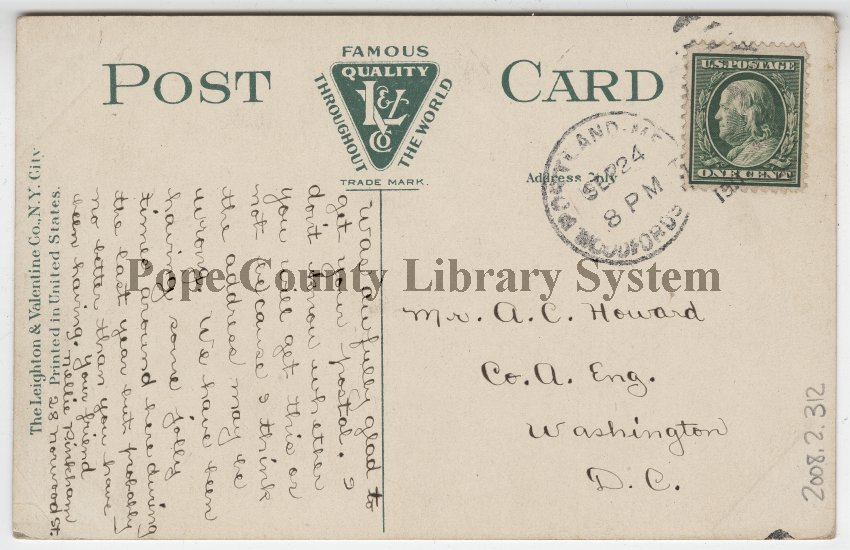 POST CARD
FAMOUS
QUALITY
THROUGHOUT
THE WORLD
L&V
Co
TRADE MARK.
Address Only
U.S. POSTAGE
ONE CENT
PORTLAND, ME.
SEP 24
8 PM
WOODFORDS
Mr. A. C. Howard
Co. A. Eng.
Washington
D. C.
Was awfully glad to
get your postal. I
don't know whether
you will get this or
not because I think
the address may be
wrong. We have been
having some jolly
times around here during
the last year but probably
no better than you have
been having. Your friend
Nellie Pinkham
The Leighton & Valentine Co., N.Y. City
Printed in United States.
2008.2.312
Pope County Library System